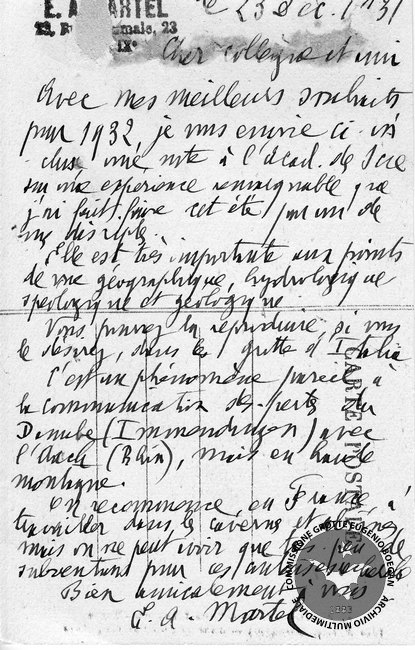 E. A. MARTEL
23, Rue d'Aumale, 23
IXe
le 23 Dec. 1931
Cher collègue et ami
Avec mes meilleurs souhaits
pour 1932 je vous envoie ci-in
cluse une note à l'Acad. de Sce
sur une expérience remarquable que
j'ai fait faire cet été par un de
mes disciples.
Elle est très importante aux points
de vue géographique, hydrologique
spéologique et géologique
Vous pouvez la reproduire, si vous
le désirez, dans le grotte d'Italia
C'est un phénomène pareil à
la communication des pertes du
Danube (Immendingen) avec
l'Aach (Rhin), mais en haute
montagne.
On recommence en France à
travailler dans les cavernes et
mais on ne peut avoir que très peu de
subventions pour ces
Bien amicalement à vous
E. A. Martel
CARTE POSTALE
COMMISSIONE GROTTE EUGENIO BOEGAN
ARCHIVIO MULTIMEDIALE
1883